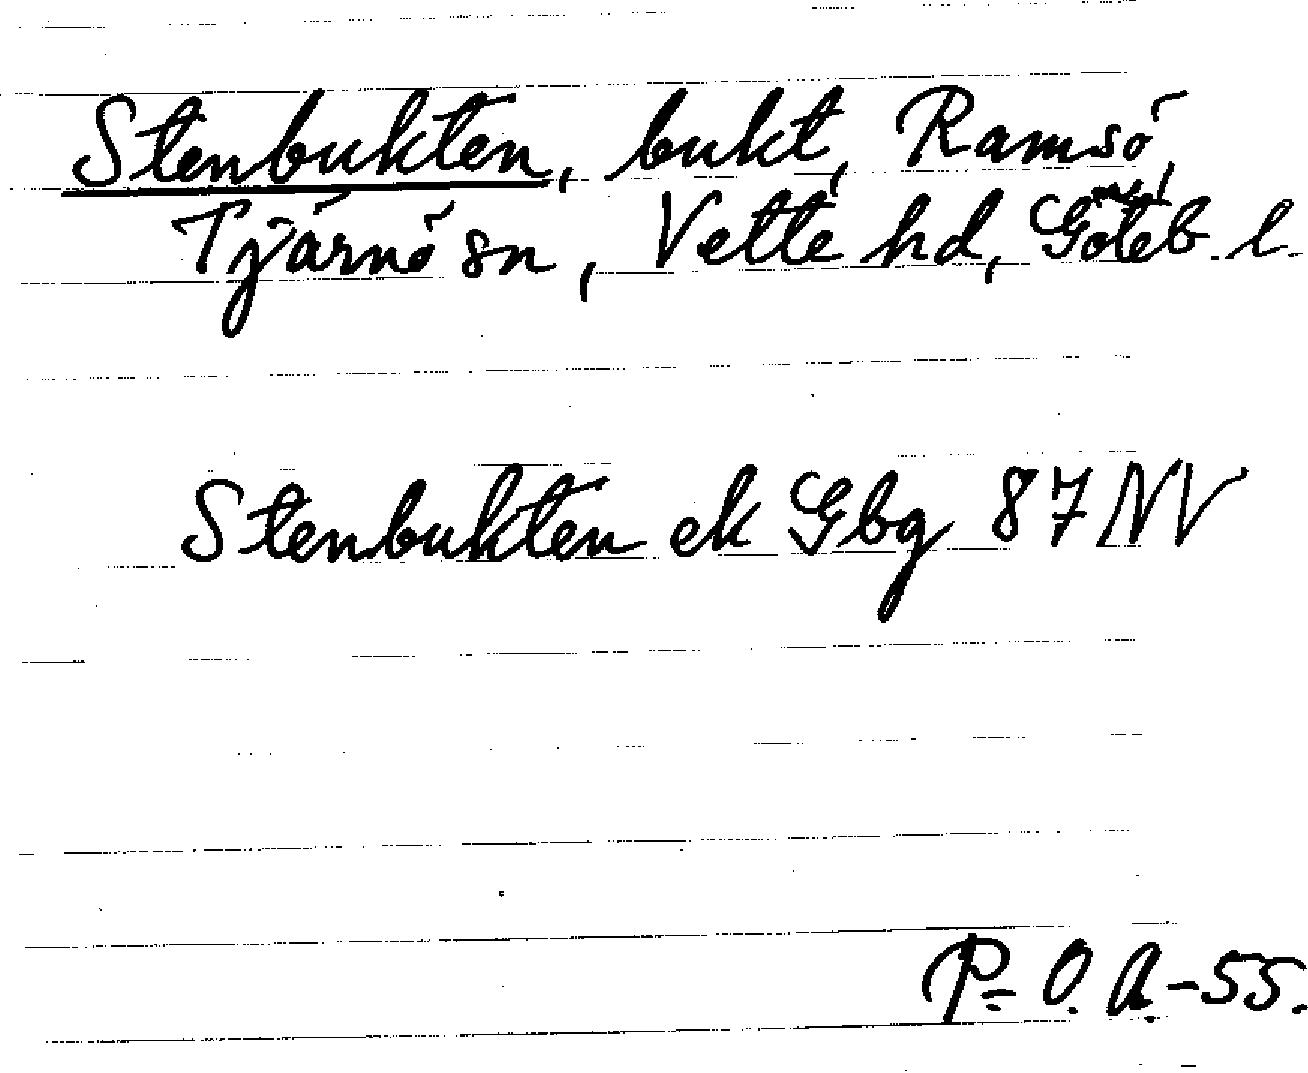 Stenbukten, bukt, Ramsö,
Tjärnö sn, Vette hd, Göteb. l.
Stenbukten ek Gbg 87 NV
P-O. A.-55.